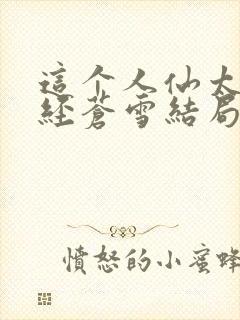 這个人仙太
經蒼雪結局
憤怒的小蜜蜂